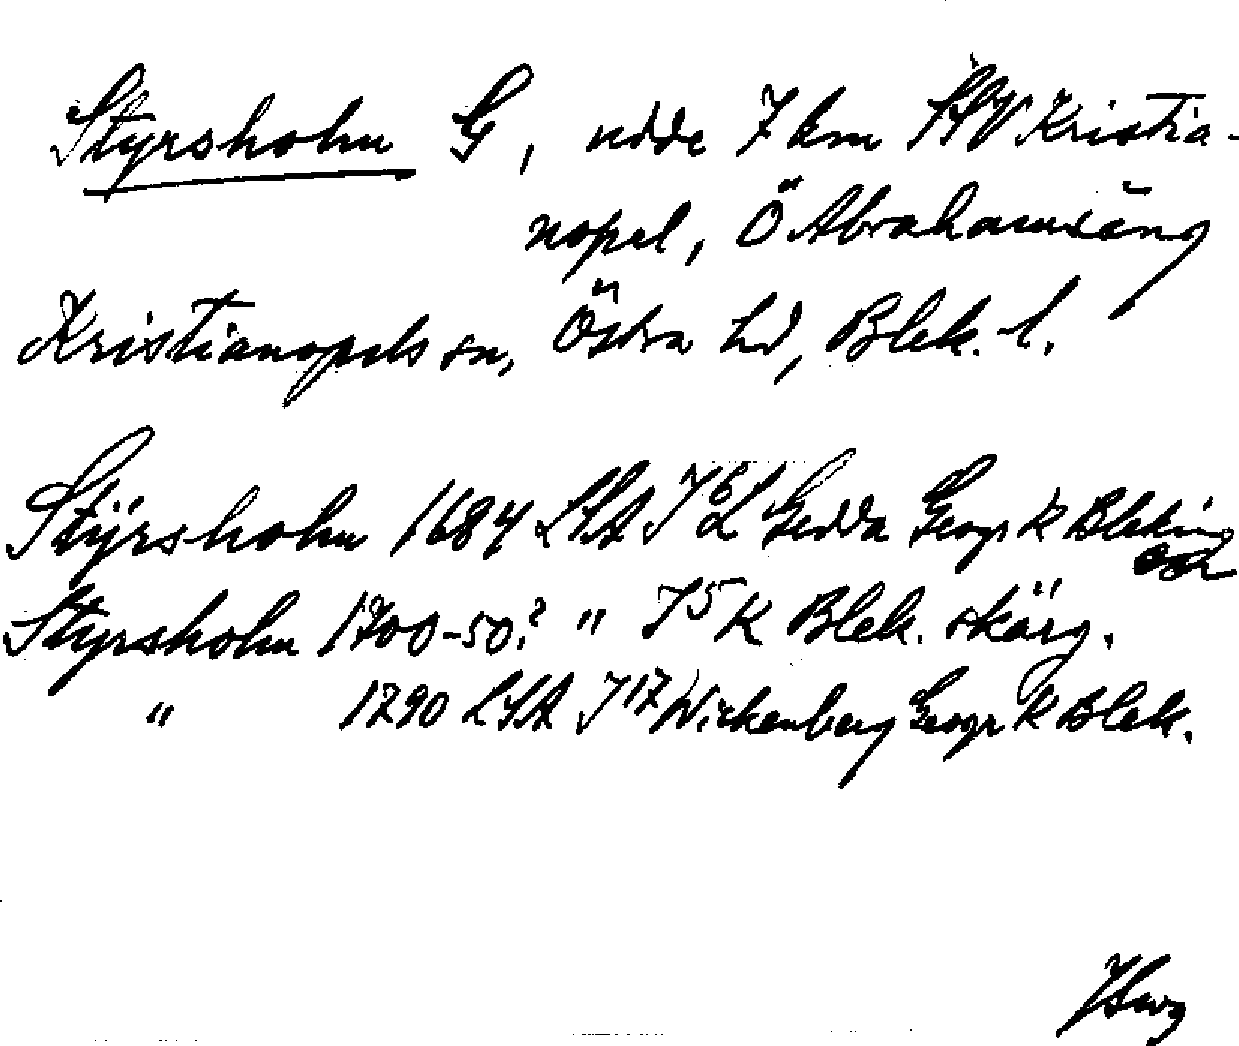 Styrsholm G, udde 7 km SSV Kristia-
nopel, Ö Abrahamsäng
Kristianopels sn, Östra hd, Blek. l.
Stÿrsholm 1684 LSA I 6 L Gedda Geogr K Bleking
Styrsholm 1700-50? " I 5 K Blek. skärg.
" 1790 LSA I 17 Wickenberg Geogr K Blek.